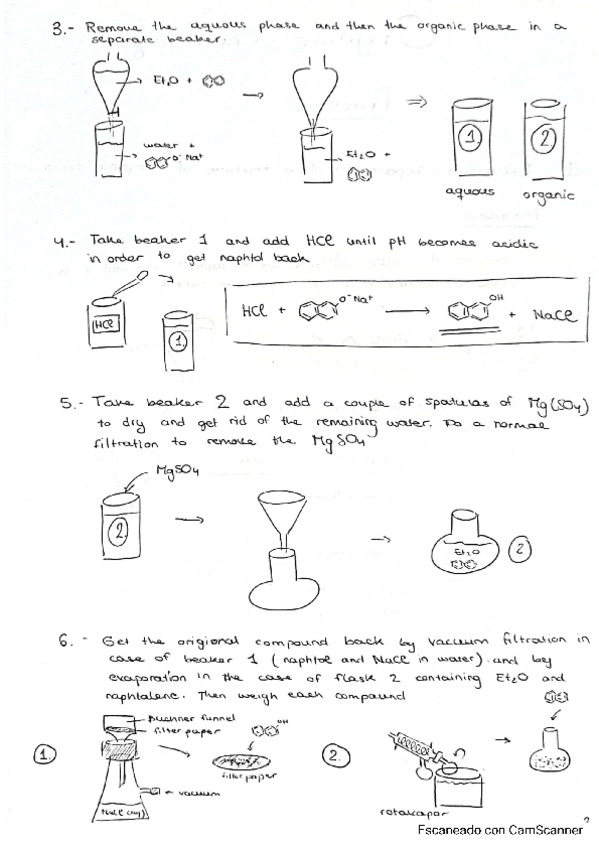 3.- Remove the aqueous phase and then the organic phase in a
separate beaker.
Et2O +
water +
O- Na+
Et2O +
1.
2
aqueous
organic
4.- Take beaker 1 and add HCl until pH becomes acidic
in order to get naphtol back
HCl
1.
HCl + O- Na+ OH + NaCl
5.- Take beaker 2 and add a couple of spatulas of Mg(SO4)
to dry and get rid of the remaining water. Do a normal
filtration to remove the MgSO4
MgSO4
2
Et2O
2
6.- Get the origional compound back by vacuum filtration in
case of beaker 1 (naphtol and NaCl in water) and by
evaporation in the case of flask 2 containing Et2O and
naphtalene. Then weigh each compound
1.
Buchner funnel
filter paper
OH
filter paper
vacuum
NaCl (aq)
2.
rotavapor
2
Escaneado con CamScanner